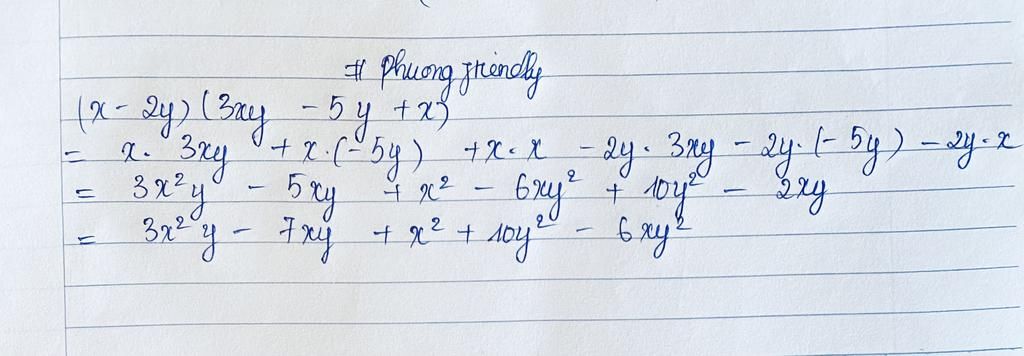 # Phuong friendly
(x - 2y) (3xy - 5y + x)
= x. 3xy + x.(-5y) + x.x - 2y. 3xy - 2y.(-5y) - 2y.x
= 3x²y - 5xy + x² - 6xy² + 10y² - 2xy
= 3x²y - 7xy + x² + 10y² - 6xy²